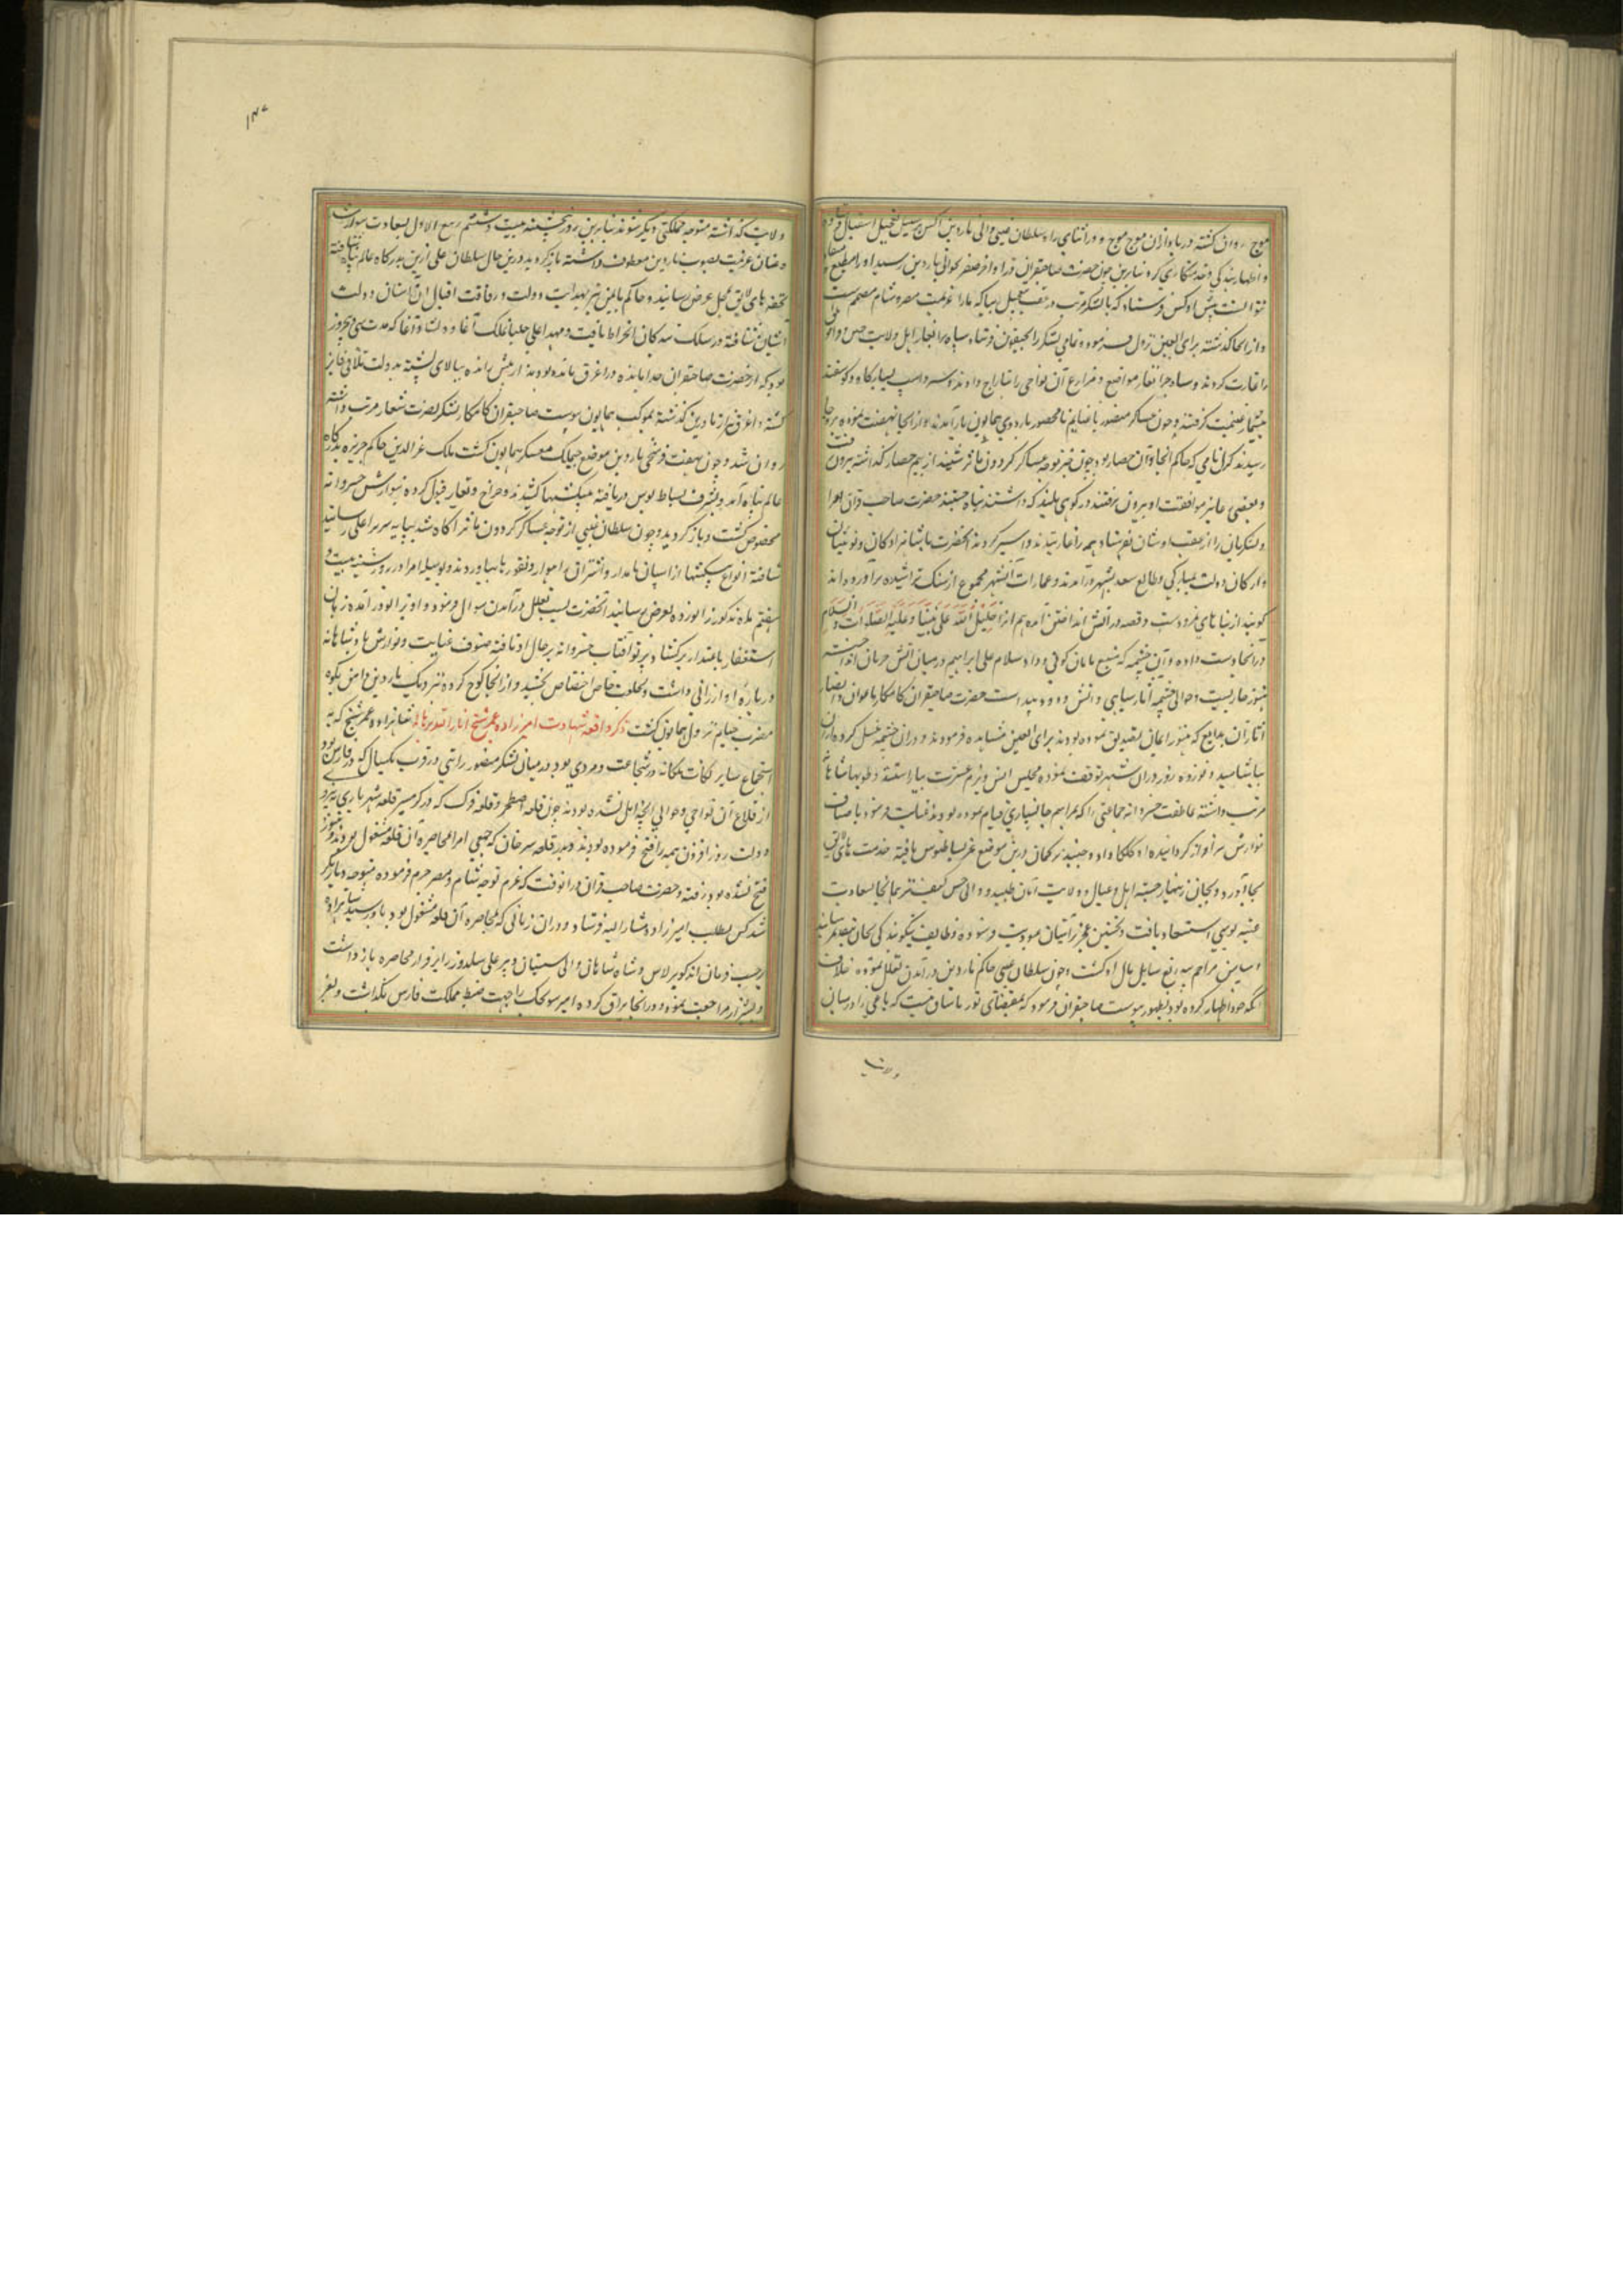 موج روان کشته دریا وازان موج موج و در اثنای راه سلطان عیسی والی ماردین کس بر سبیل تعجیل استقبال
و اظهار بندکی و خدمتکاری کرد بنابرین چون حضرت صاحبقران در اواخر صفر بحوالی ماردین رسید او را مطیع
نتوانست پیش او کس فرستاد که با لشکر مرتب بتعجیل بیا که ما را عزیمت مصر و شام مصمم است
و از انجا کذشته براس العین نزول فرموده و تمامی لشکر را
را غارت کردند و سپاه جرانغار مواضع و مزارع آن نواحی را بتاراج دادند و اسب بسیار و کاو و کوسفند
بیشمار غنیمت کرفتند و چون عساکر منصور با غنایم نامحصور باردوی همایون باز آمدند و از انجا نهضت نموده
رسیدند نامی که حاکم انجا و آن حصار بود چون خبر توجه عساکر کردون ماثر شنید از بیم حصار کذاشته بیرون رفت
و بعضی بموافقت او بیرون رفتند در کوهی بلند که داشتند پناه جستند حضرت صاحب قران امرا
و لشکریان را از عقب ایشان بفرستاد همه را غارتیدند و اسیر کردند انحضرت با شاهزادکان و نوئینان
و ارکان دولت بمبارکی و طالع سعد بشهر درآمدند و عمارات آنشهر مجموع از سنک تراشیده برآورده اند
کویند از بناهای نمرودست و قصه در آتش انداختن ابراهیم خلیل الله علی نبینا و علیه الصلوات و السلام
در انجا دست داده و آن چشمه که منبع یا نار کونی بردا و سلام علی ابراهیم در میان آتش جریان
هنوز جاریست و حوالی چشمه آثار سیاهی و آتش و دود پیداست حضرت صاحبقران کامکار با اعوان و انصار
آثار آن بدایع که هنوز بعیان تصدیق نموده بودند برای العین مشاهده فرمودند و در ان چشمه غسل کرده
بیاشامید و نوزده روز در ان شهر توقف نموده مجلس انس و بزم عشرت بیاراستند و طویها
مرتب داشته عاطفت خسروانه جماعتی را که بمراسم جانسپاری قیام نموده بودند عنایت فرمود
نوازش سرافراز کردانیده و جنید ترکمان درین موضع عز بساط بوس یافته خدمت های لایق
بجا آورد و بجان زینهار جسته اهل و عیال و ولایت امان طلبید و والی حصن کیف نیز همانجا بسعادت
عتبه بوسی استسعاد یافت و بحسن
و میامن مراحم بیدریغ شامل حال او کشت و چون سلطان عیسی حاکم ماردین در آمدن تعلل نموده خلاف
انکه خود اظهار کرده بود بظهور پیوست صاحبقران فرمود که بمقتضای توره ما شان نیست که یاغی را در میان
ولایت
۱۳۷
ولایت کذاشته متوجه مملکتی دیکر شوند بنابرین روز پنجشنبه بیست و هشتم ربیع الاول بسعادت سوار
و عنان عزیمت بصوب ماردین معطوف داشته بازکردید درین حال سلطان علی ارزین بدرکاه عالم پناه شتافته
تحفه های لایق بمحل عرض رسانید و حاکم باتمن نیز بهدایت دولت و رفاقت اقبال بآستان دولت
آشیان شتافته در سلک بندکان انخراط یافت و مهد اعلی چلپان ملک آغا و دولت آغا که مدت سی و هجروز
بود که از حضرت صاحبقران جدا مانده در اغرق مانده بودند از پیش رانده ببالای پشته بدولت تلاقی فایز
کشته و اغرق نیز از ماردین کذشته بموکب همایون پیوست صاحبقران کامکار لشکر نصرت شعار مرتب داشته
روان شد و چون بهفت فرسخی ماردین موضع چیملک معسکر همایون کشت ملک عزالدین حاکم جزیره بدرکاه
عالم پناه آمد و بشرف بساط بوس دریافته پیکشها کشید و خراج و تغار قبول کرده بنوازش خسروانه
مخصوص کشت و بازکردید و چون سلطان عیسی از توجه عساکر کردون ماثر آکاه شد بپایه سریر اعلی
شتافته انواع پیشکشها از اسپان نامدار و اشتران راهوار و نقود بیاوردند و بوسیله امرا در روز شنبه بیست و
هفتم ماه مذکور زانو زده بعرض رسانید انحضرت سبب تعلل در آمدن سوال فرمود و او بزانو درآمده زبان
استغفار باعتذار برکشاد پرتو آفتاب خسروانه بر حال او تافته صنوف عنایت و نوازش پادشاهانه
درباره او ارزانی داشت و بخلعت خاص اختصاص بخشید و از انجا کوچ کرده نزدیک ماردین دامن کوه
مضرب خیام نزول همایون کشت ذکر واقعه شهادت امیرزاده عمر شیخ انار الله برهانه شاهزاده عمر شیخ که به
استجماع سایر ملکات ملکانه در شجاعت و مردی بود در میان لشکر منصور رایتی در قرب یکسال که در فارس بود
از قلاع آن نواحی و حوالی آنچه ایل نشده بودند چون قلعه اصطخر و قلعه فرک که در کرمسیر قلعه شهریاری
دولت روزافزون همه را فتح فرموده بودند و بدر قلعه سیرجان که جمعی امرا بمحاصره آن قلعه مشغول بودند و هنوز
فتح نشده بود رفته و حضرت صاحب قران در انوقت که عزم توجه شام و مصر جزم فرموده متوجه دیاربکر
شد کس بطلب امیرزاده مشارالیه فرستاد و در ان زمانی که بمحاصره آن قلعه مشغول بود باو رسید شاهزاده
برحسب فرمان اندکو برلاس و شاه شاهان والی سیستان و پیر علی سلدوز را برقرار بمحاصره بازداشت
و بشیراز مراجعت نموده و در انجا یراق کرده امیر سونجک را جهت ضبط مملکت فارس بکذاشت و بعز